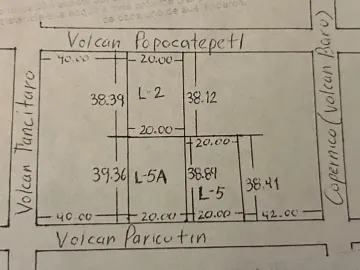 Volcan Popocatepetl
40.00 20.00
38.39 L-2 38.12
20.00
20.00
39.36 L-5A 38.89 L-5 38.41
40.00 20.00 20.00 42.00
Volcan Paricutin
Volcan Tancitaro
Copernico (Volcan Baru)